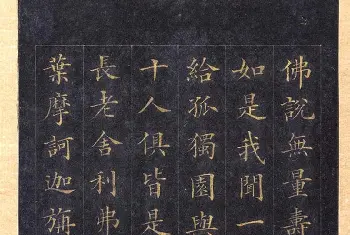 佛說無量壽
如是我聞一
給孤獨園與
十人俱皆是
長老舍利弗
葉摩訶迦旃